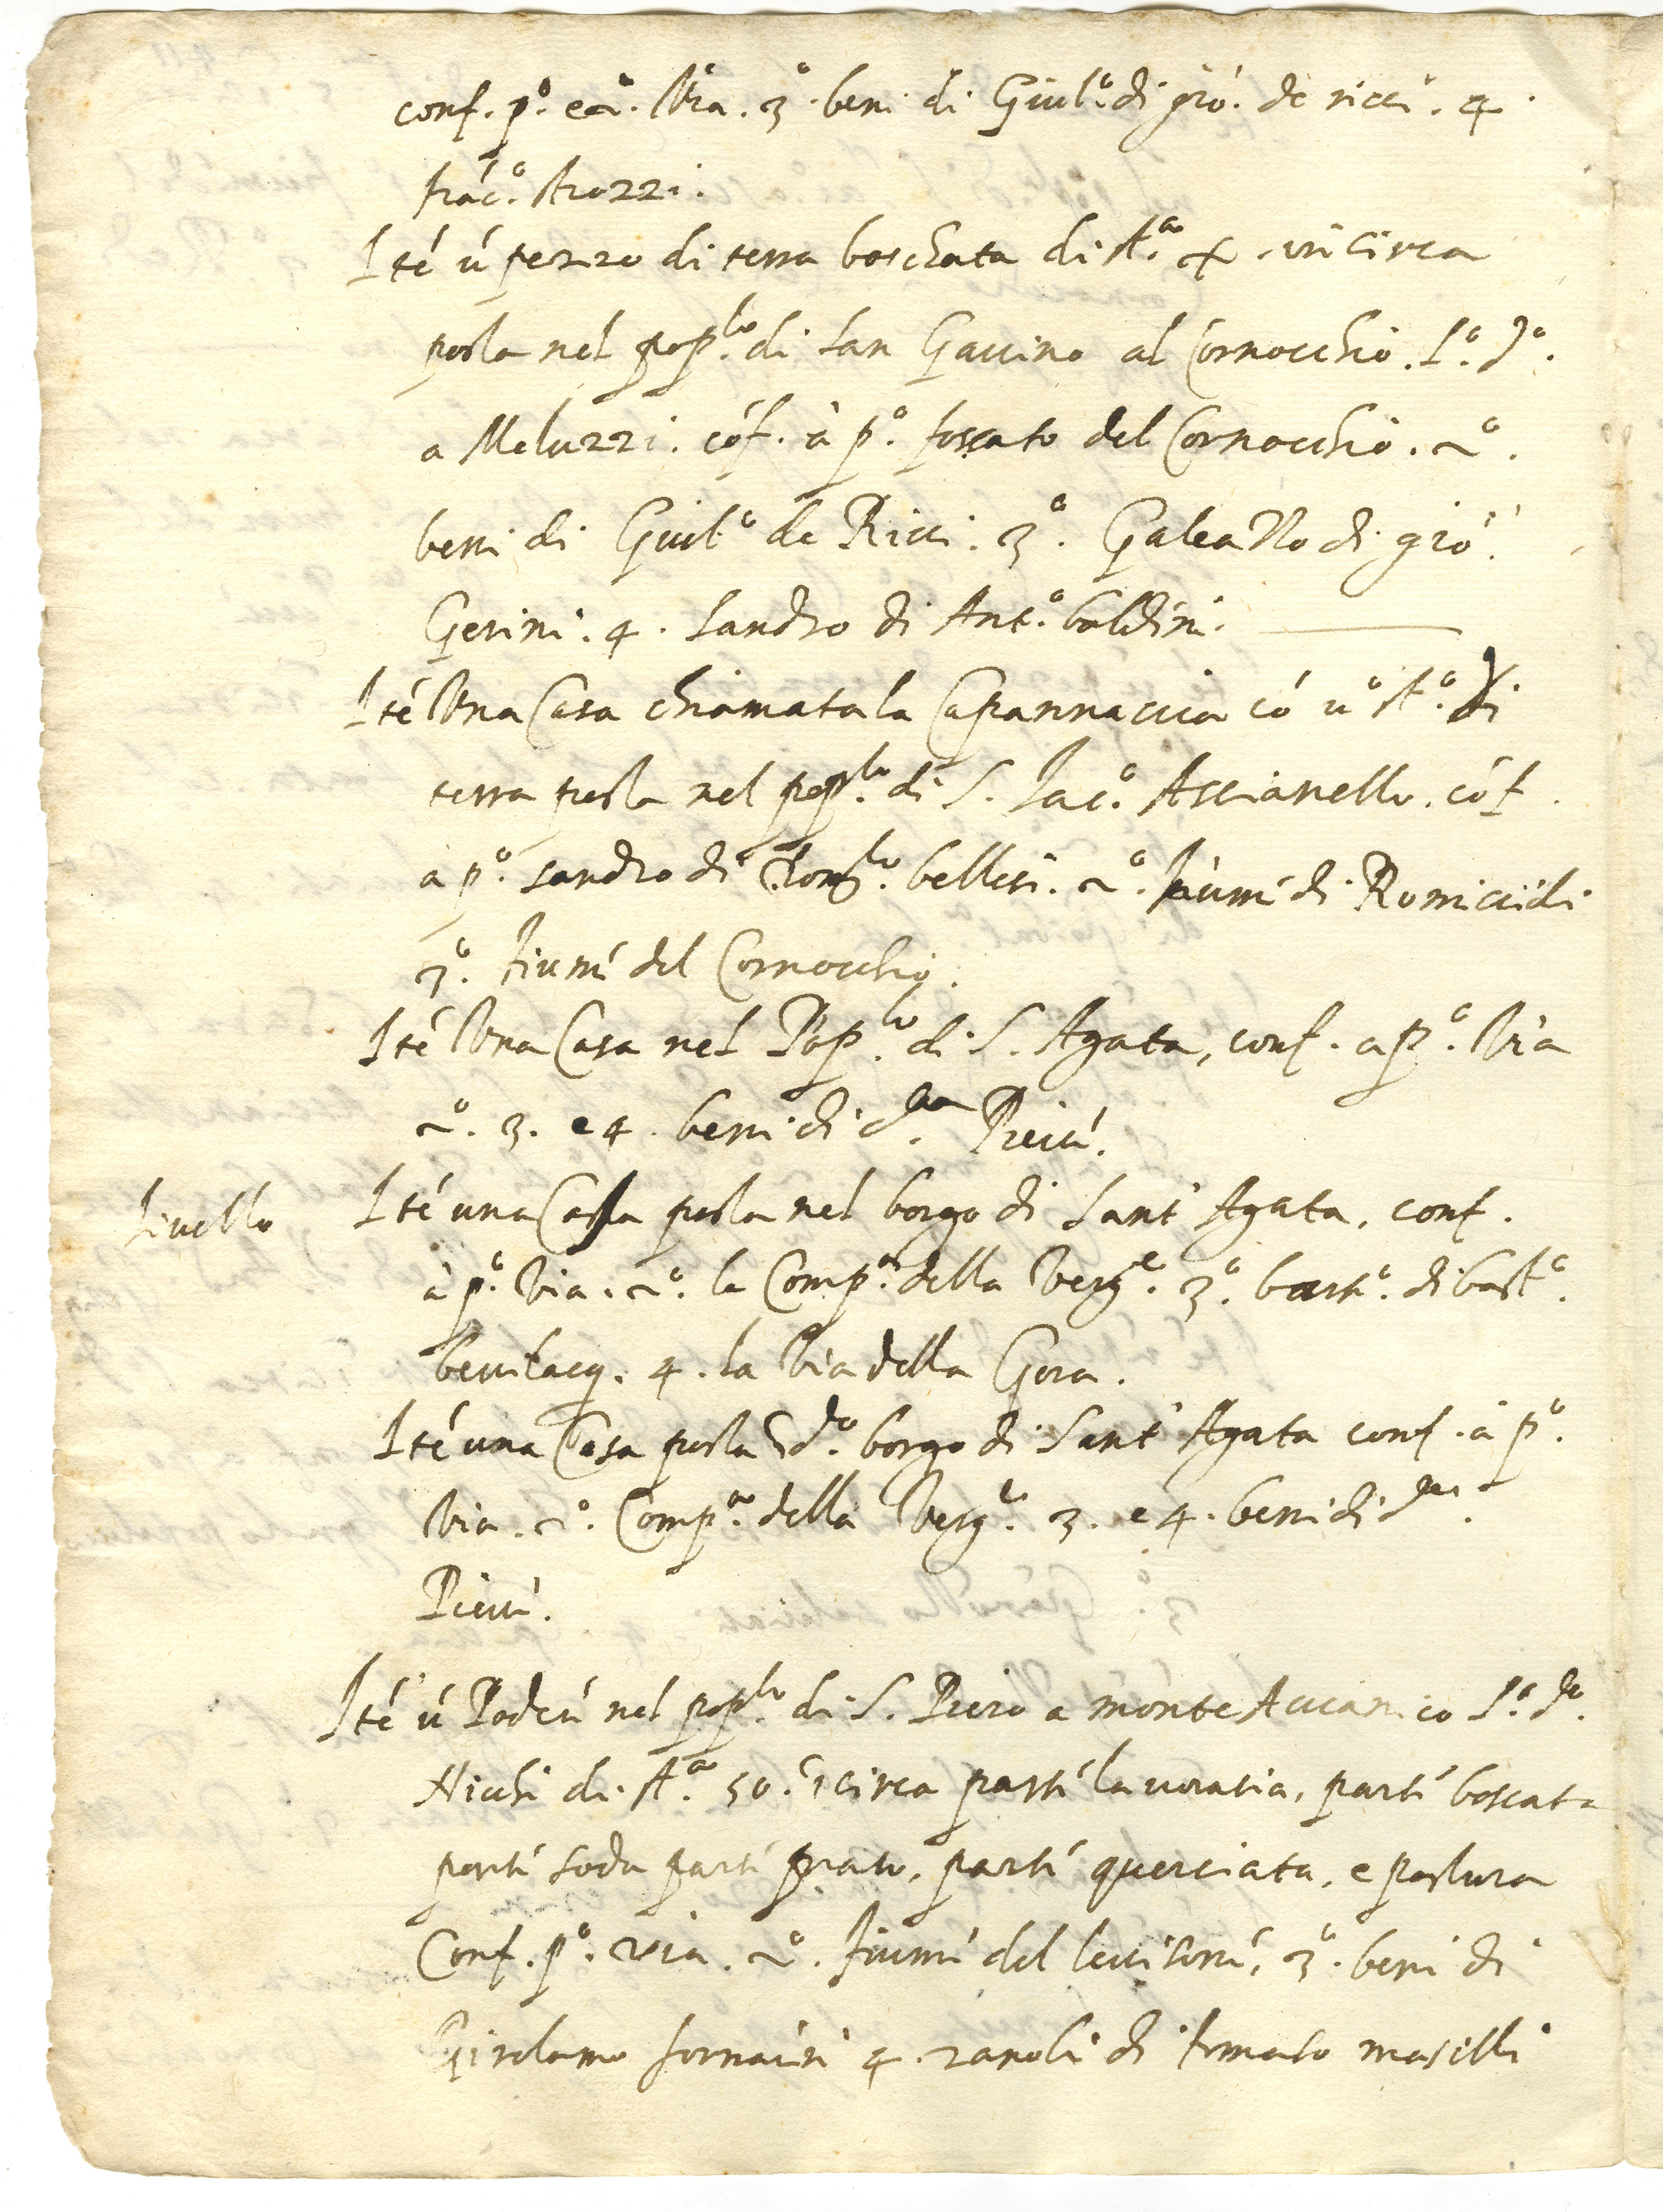 conf. p.º e 2.º Via. 3.º beni di Giul.º di giō. de ricci. 4
frāc.º strozzi.
Itē ū pezzo di terra boschata di st.ª X. in circa
posta nel pop.lo di San Gavino al Cornocchio. l.º d.º
a Meluzzi. cōf. à p.º fossato del Cornocchio. 2.º
beni di Giul.º de Ricci. 3.º Galeatto di giō.
Gerini. 4. Sandro di Ant.º baldini.
Itē Una Casa chiamata la Capannaccia cō u.º st.º di
terra posta nel pop.lo di S. Iac.º Ascianello. cōf.
a p.º sandro di bellesi. 2.º fiumē di Romiccioli
3.º fiumē del Cornocchio.
Itē Una Casa nel Pop.lo di S. Agata, conf. a p.º Via
2.º. 3. e 4. beni di d.ta Pieve.
Livello
Itē una Casa posta nel borgo di Sant' Agata. conf.
à p.º Via. 2.º la Comp.ª della Verg.e 3.º bast.º di bast.º
bevilacq. 4. la Via della Gora.
Itē una Casa posta ī d.to borgo di Sant' Agata conf. à p.º
Via. 2.º Comp.ª della Verg.e 3. e 4. beni di d.ta
Pieve.
Itē ū Poderē nel pop.lo di S. Piero a monte Accianico l.º d.º
Nicchi di st.ª 50. ī circa partē lavoratia, partē boscata
partē soda partē prato, partē querciata, e pastura
Conf. p.º via. 2.º fiumē del levisonē, 3.º beni di
Girolamo fornaini 4. zanobi di tomaso masilli